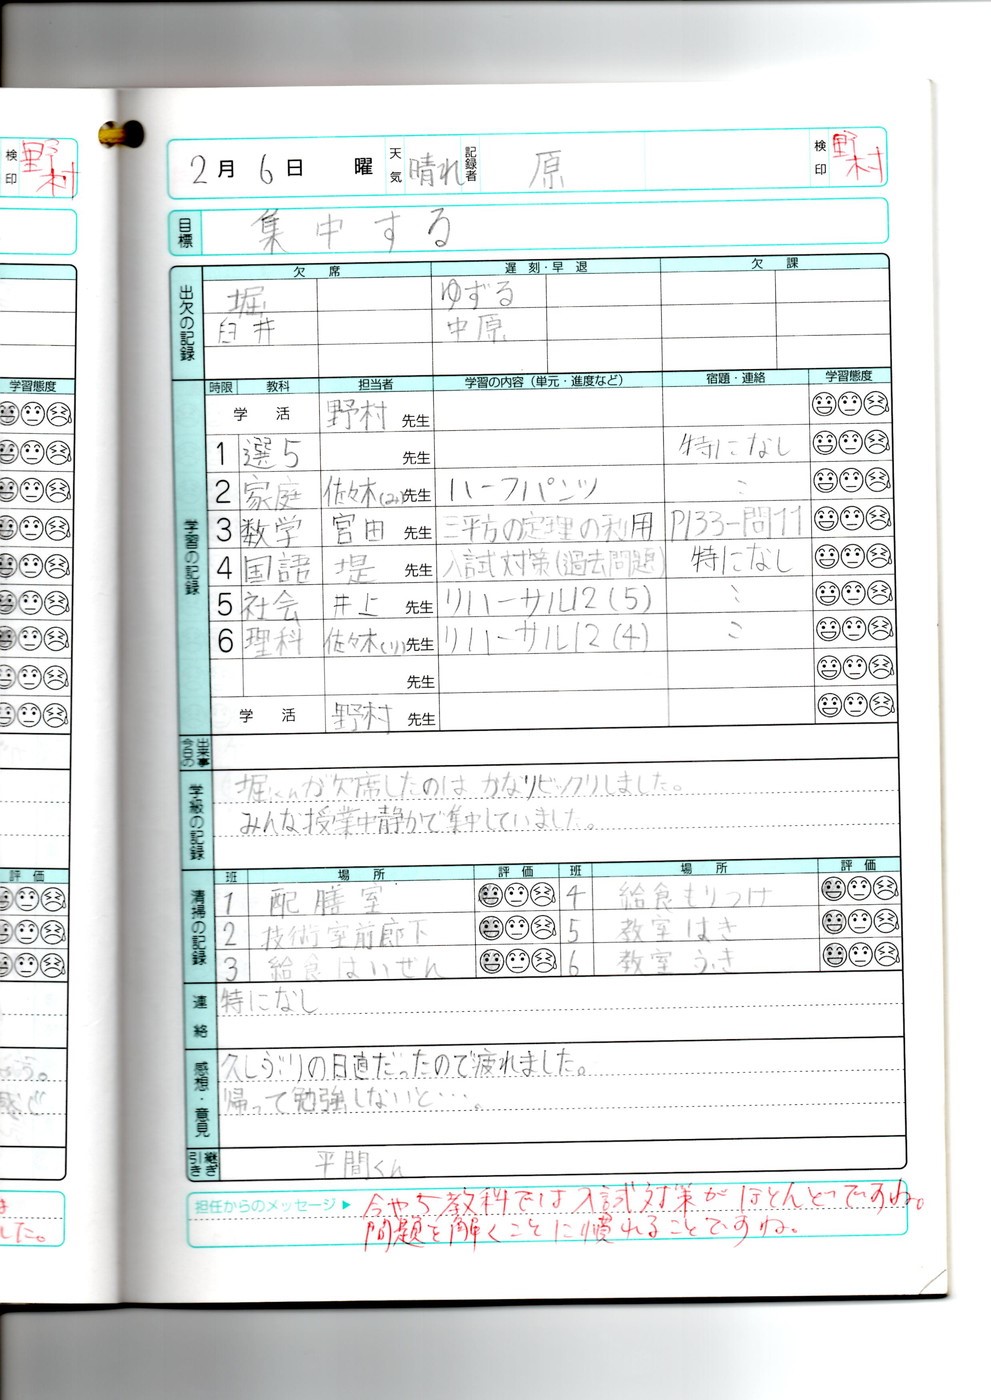 検印 野村
2月6日 曜 天気 晴れ 記録者 原 検印 野村
目標 集中する
出欠の記録 欠席 遅刻・早退 欠課
堀 ゆずる
臼井 中原
学習態度
学習の記録 時限 教科 担当者 学習の内容（単元・進度など） 宿題・連絡 学習態度
学活 野村 先生
1 選5 先生 特になし
2 家庭 佐々木(み)先生 ハーフパンツ 〃
3 数学 宮田 先生 三平方の定理の利用 P133-問11
4 国語 堤 先生 入試対策(過去問題) 特になし
5 社会 井上 先生 リハーサル12(5) 〃
6 理科 佐々木(り)先生 リハーサル12(4) 〃
先生
学活 野村 先生
今日の出来事
学級の記録 堀くんが欠席したのは、かなりビックリしました。
みんな授業中静かで集中していました。
評価
清掃の記録 班 場所 評価 班 場所 評価
1 配膳室 4 給食もりつけ
2 技術室前廊下 5 教室はき
3 給食はいぜん 6 教室ふき
連絡 特になし
感想・意見 久しぶりの日直だったので疲れました。
帰って勉強しないと…。
引き継ぎ 平間くん
担任からのメッセージ▶ 今や5教科では入試対策がほとんどですね。
問題を解くことに慣れることですね。
した。